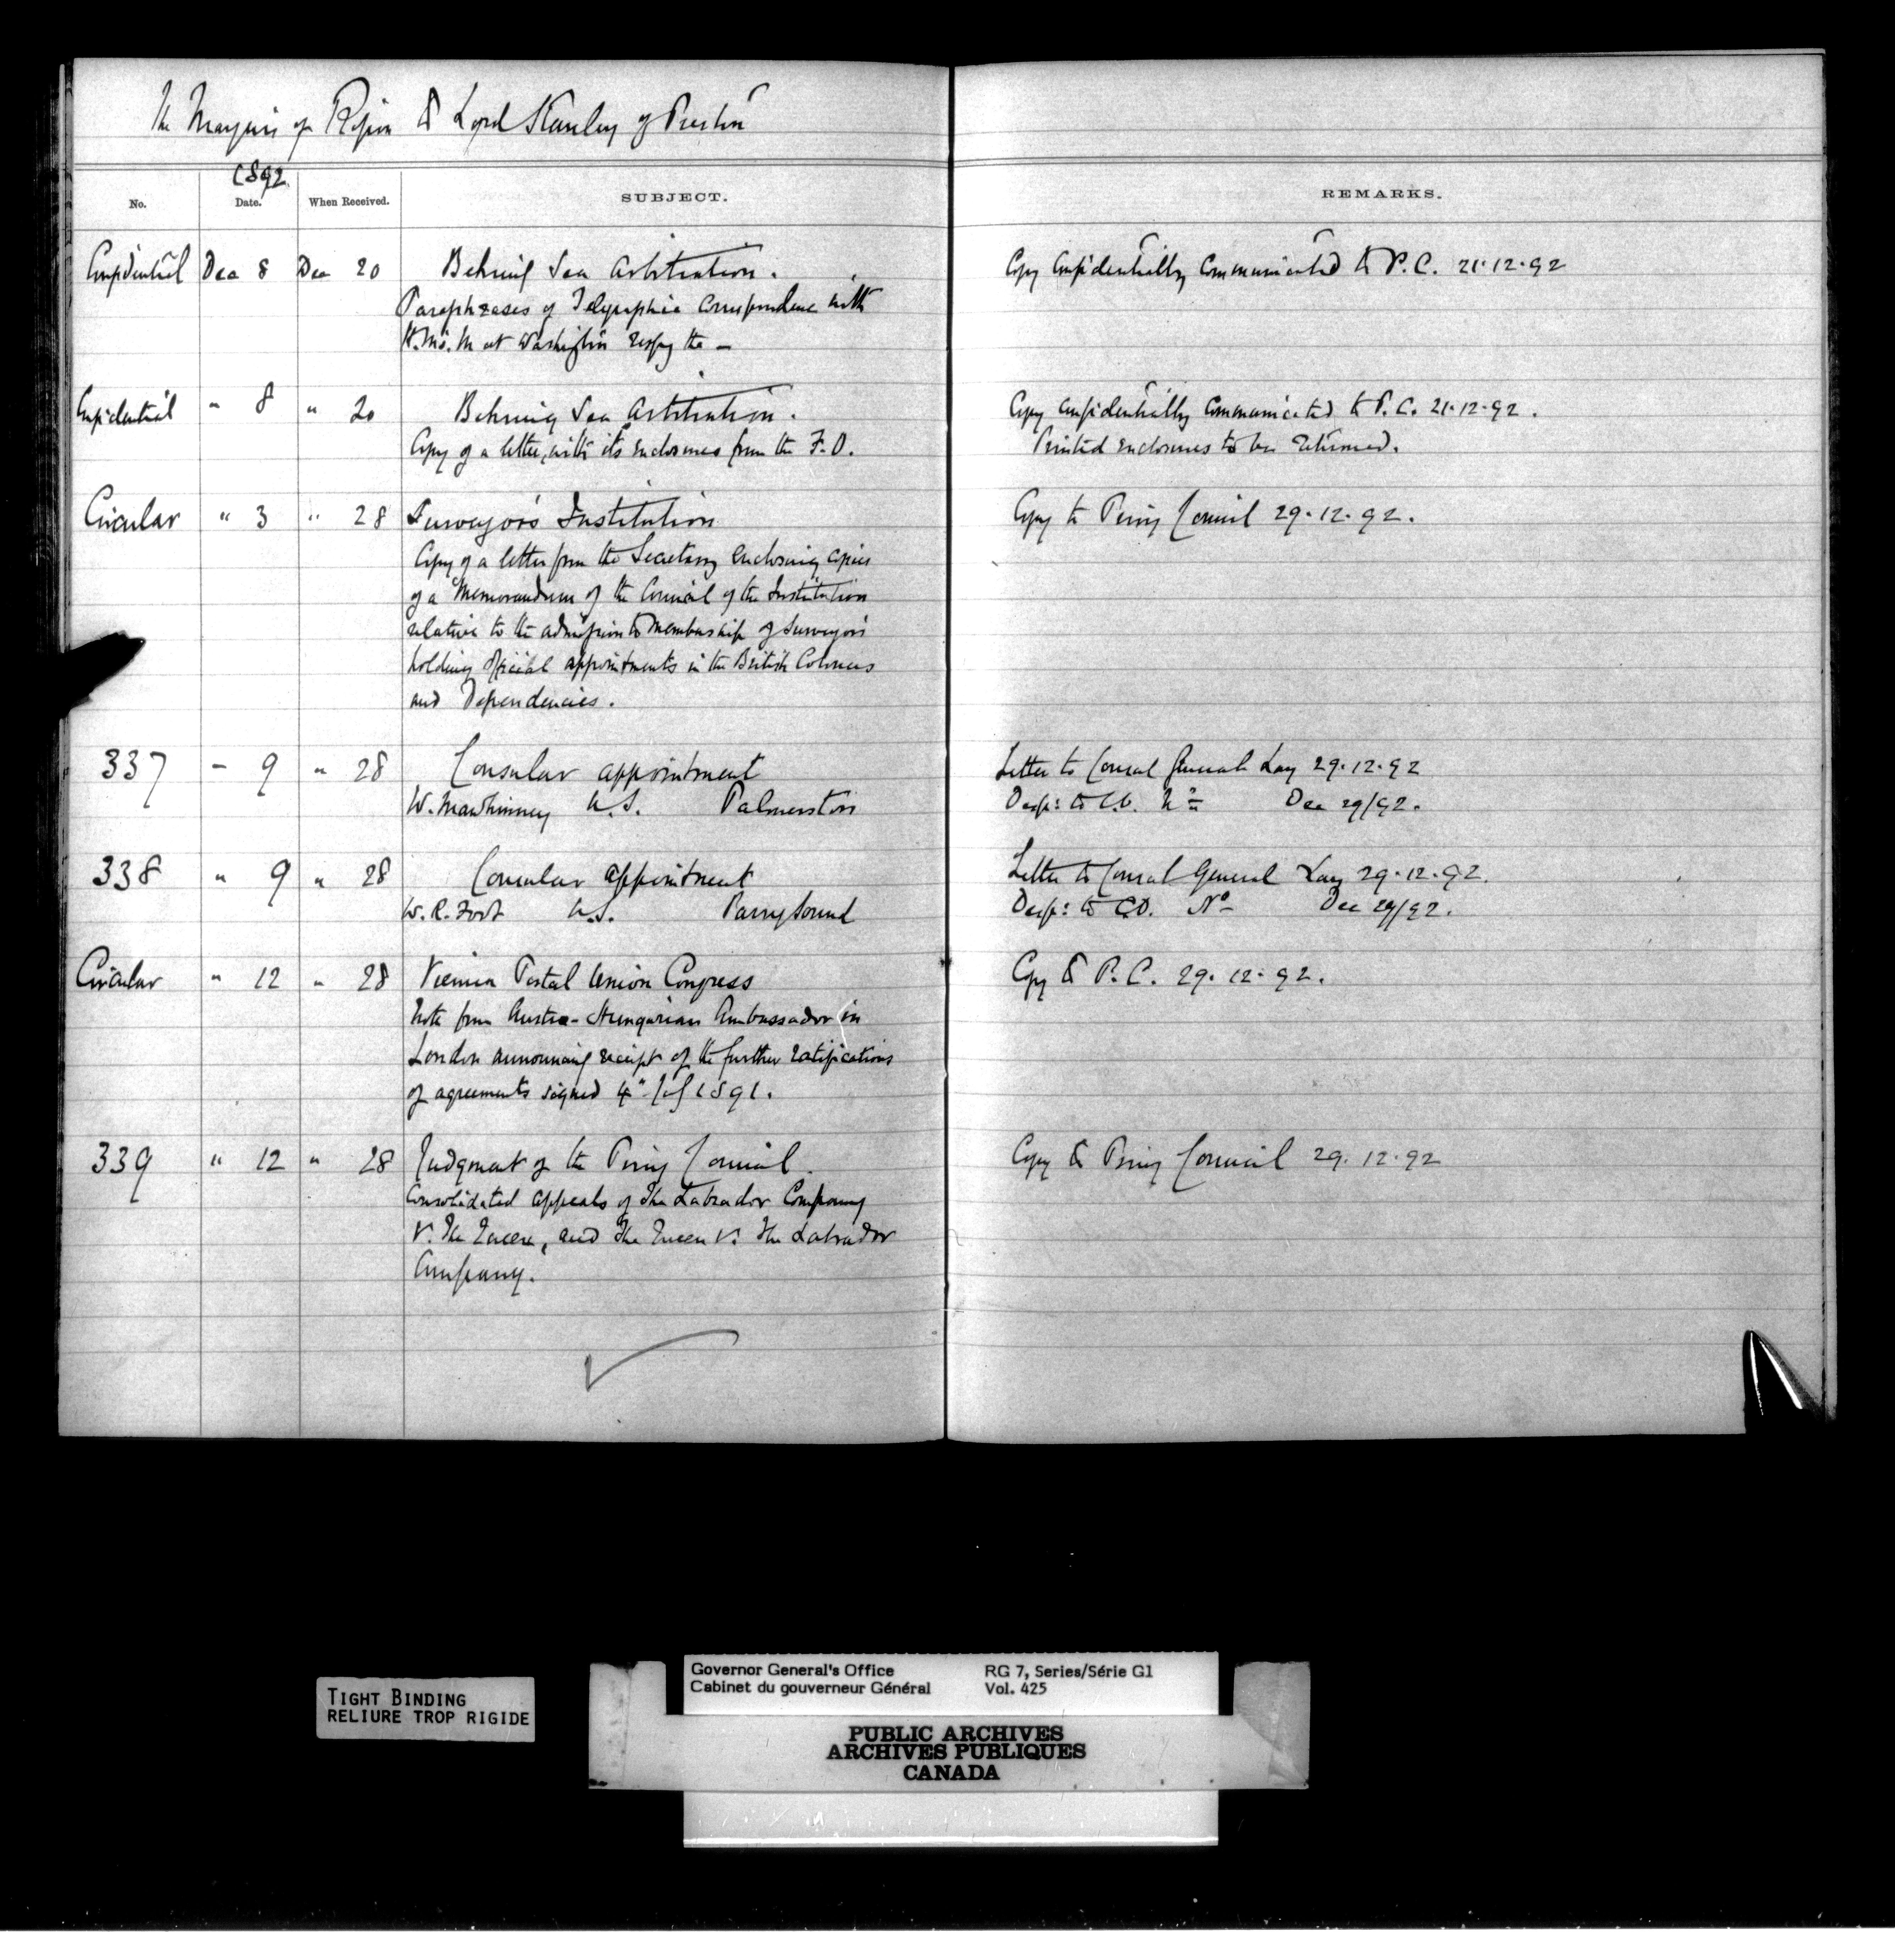 The Marquis of Ripon to Lord Stanley of Preston
1892
No. Date. When Received. SUBJECT. REMARKS.
Confidential Dec 8 Dec 20 Behring Sea Arbitration. Copy confidentially communicated to P.C. 21.12.92
Paraphrases of Telegraphic correspondence with
H.M's.M at Washington respg the —
Confidential " 8 " 20 Behring Sea Arbitration. Copy confidentially communicated to P.C. 21.12.92.
Copy of a letter, with its enclosures from the F.O. Printed enclosures to be returned.
Circular " 3 " 28 Surveyors Institution Copy to Privy Council 29.12.92.
Copy of a letter from the Secretary enclosing copies
of a Memorandum of the Council of the Institution
relative to the admission to membership of Surveyors
holding official appointments in the British Colonies
and Dependencies.
337 " 9 " 28 Consular appointment Letter to Consul General Lay 29.12.92
W. Mawhinney U.S. Palmerston Desp: to C.O. No Dec 29/92.
338 " 9 " 28 Consular appointment Letter to Consul General Lay 29.12.92.
W.R. Foot U.S. Parry Sound Desp: to C.O. No Dec 29/92.
Circular " 12 " 28 Vienna Postal Union Congress Copy to P.C. 29.12.92.
Note from Austro-Hungarian Ambassador in
London announcing receipt of the further ratifications
of agreements signed 4" July 1891.
339 " 12 " 28 Judgment of the Privy Council. Copy to Privy Council 29.12.92
Consolidated appeals of The Labrador Company
v. The Queen, and The Queen v. The Labrador
Company.
TIGHT BINDING
RELIURE TROP RIGIDE
Governor General's Office RG 7, Series/Série G1
Cabinet du gouverneur Général Vol. 425
PUBLIC ARCHIVES
ARCHIVES PUBLIQUES
CANADA